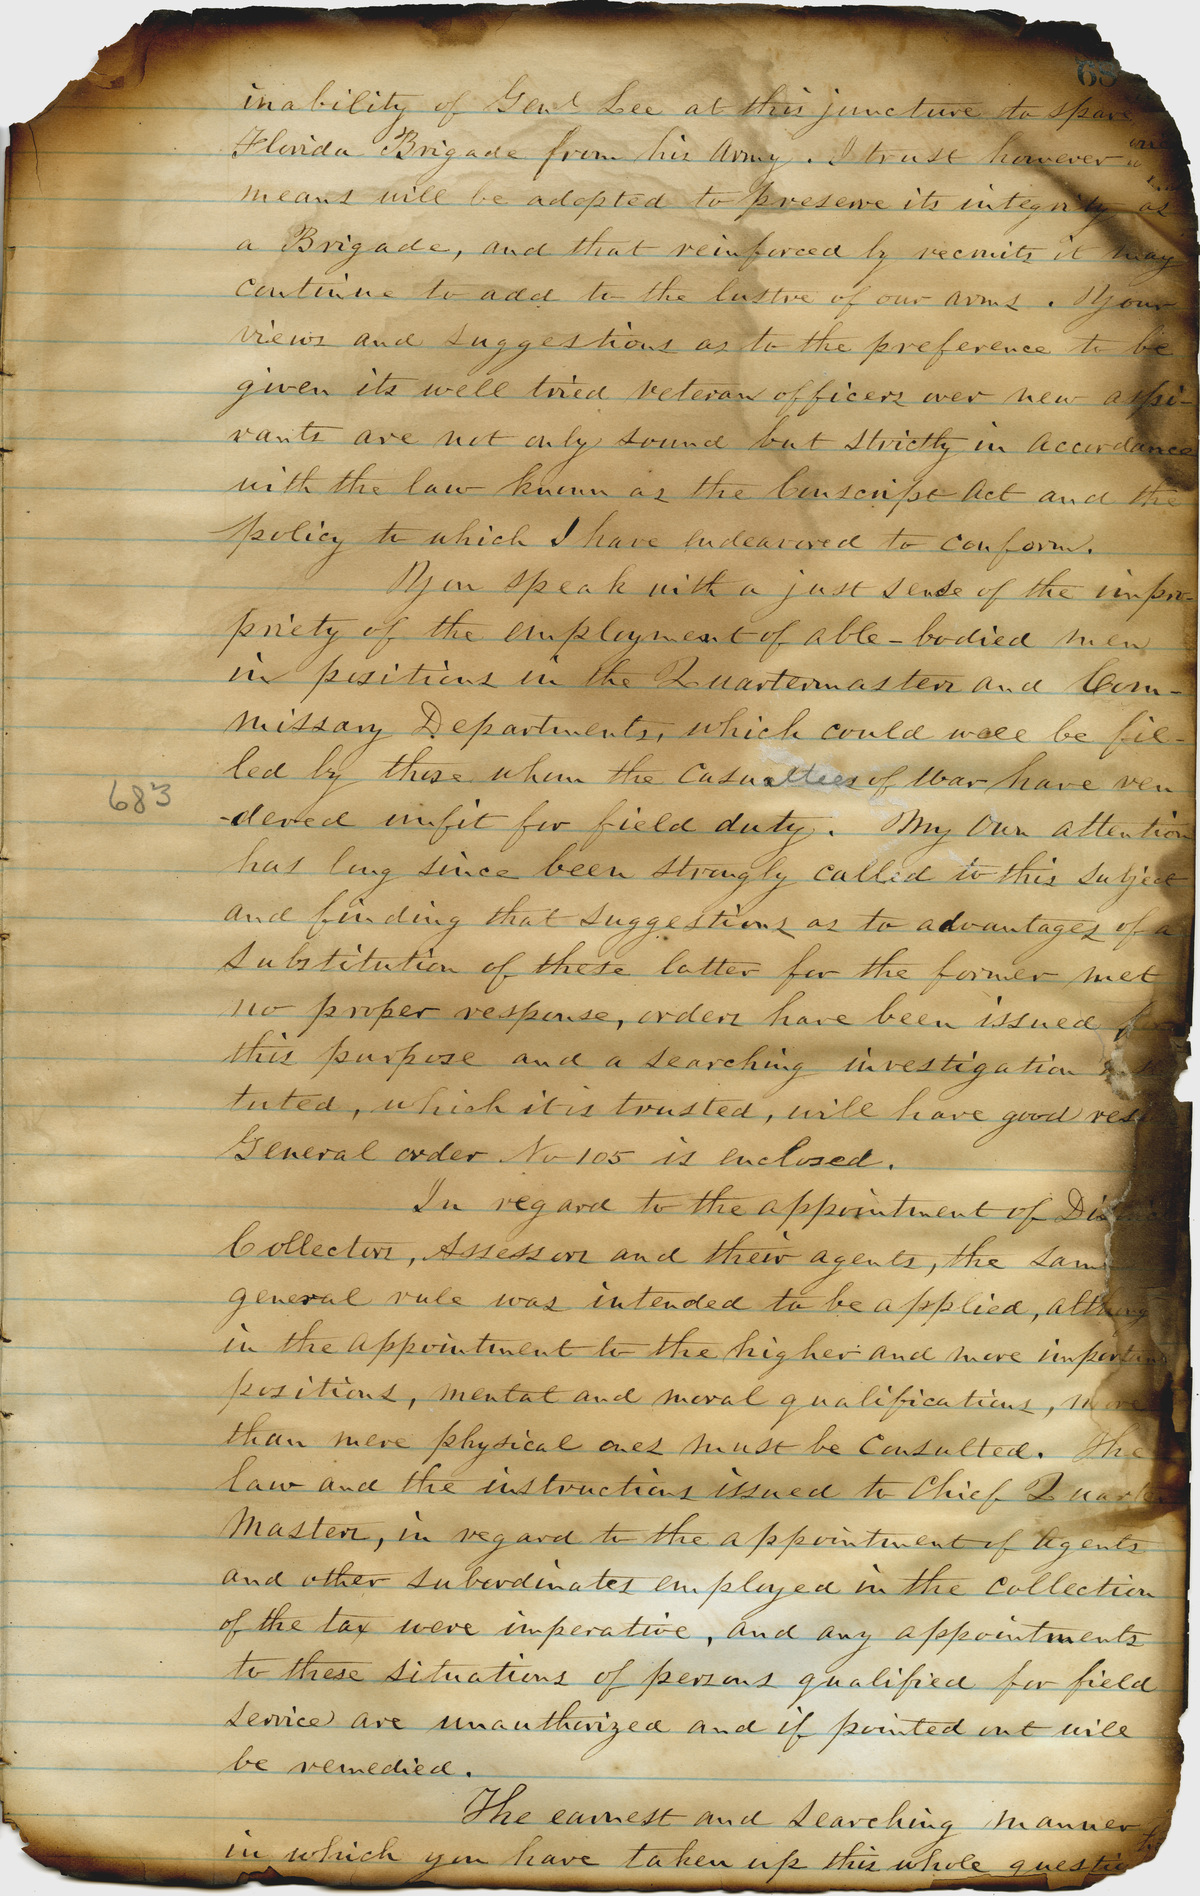 68
inability of Genl Lee at this juncture to spare
Florida Brigade from his Army. I trust however
means will be adopted to preserve its integrity as
a Brigade, and that reinforced by recruits it may
continue to add to the lustre of our arms. Your
views and suggestions as to the preference to be
given its well tried veteran officers over new aspi-
rants are not only sound but strictly in accordance
with the law known as the Conscript Act and the
policy to which I have endeavored to conform.
You speak with a just sense of the impro-
priety of the employment of able-bodied men
in positions in the Quartermasters and Com-
missary Departments, which could well be fil-
led by those whom the casualties of war have ren
683
-dered unfit for field duty. My own attention
has long since been strongly called to this subject
and finding that suggestions as to advantages of a
substitution of these latter for the former met
no proper response, orders have been issued for
this purpose and a searching investigation
tuted, which it is trusted, will have good res
General order No 105 is enclosed.
In regard to the appointment of Dis
Collectors, Assessors and their agents, the same
general rule was intended to be applied, although
in the appointment to the higher and more important
positions, mental and moral qualifications, more
than mere physical ones must be consulted. The
law and the instructions issued to Chief Quarter
Masters, in regard to the appointment of Agents
and other subordinates employed in the collection
of the tax were imperative, and any appointments
to these situations of persons qualified for field
service are unauthorized and if pointed out will
be remedied.
The earnest and searching manner
in which you have taken up this whole question